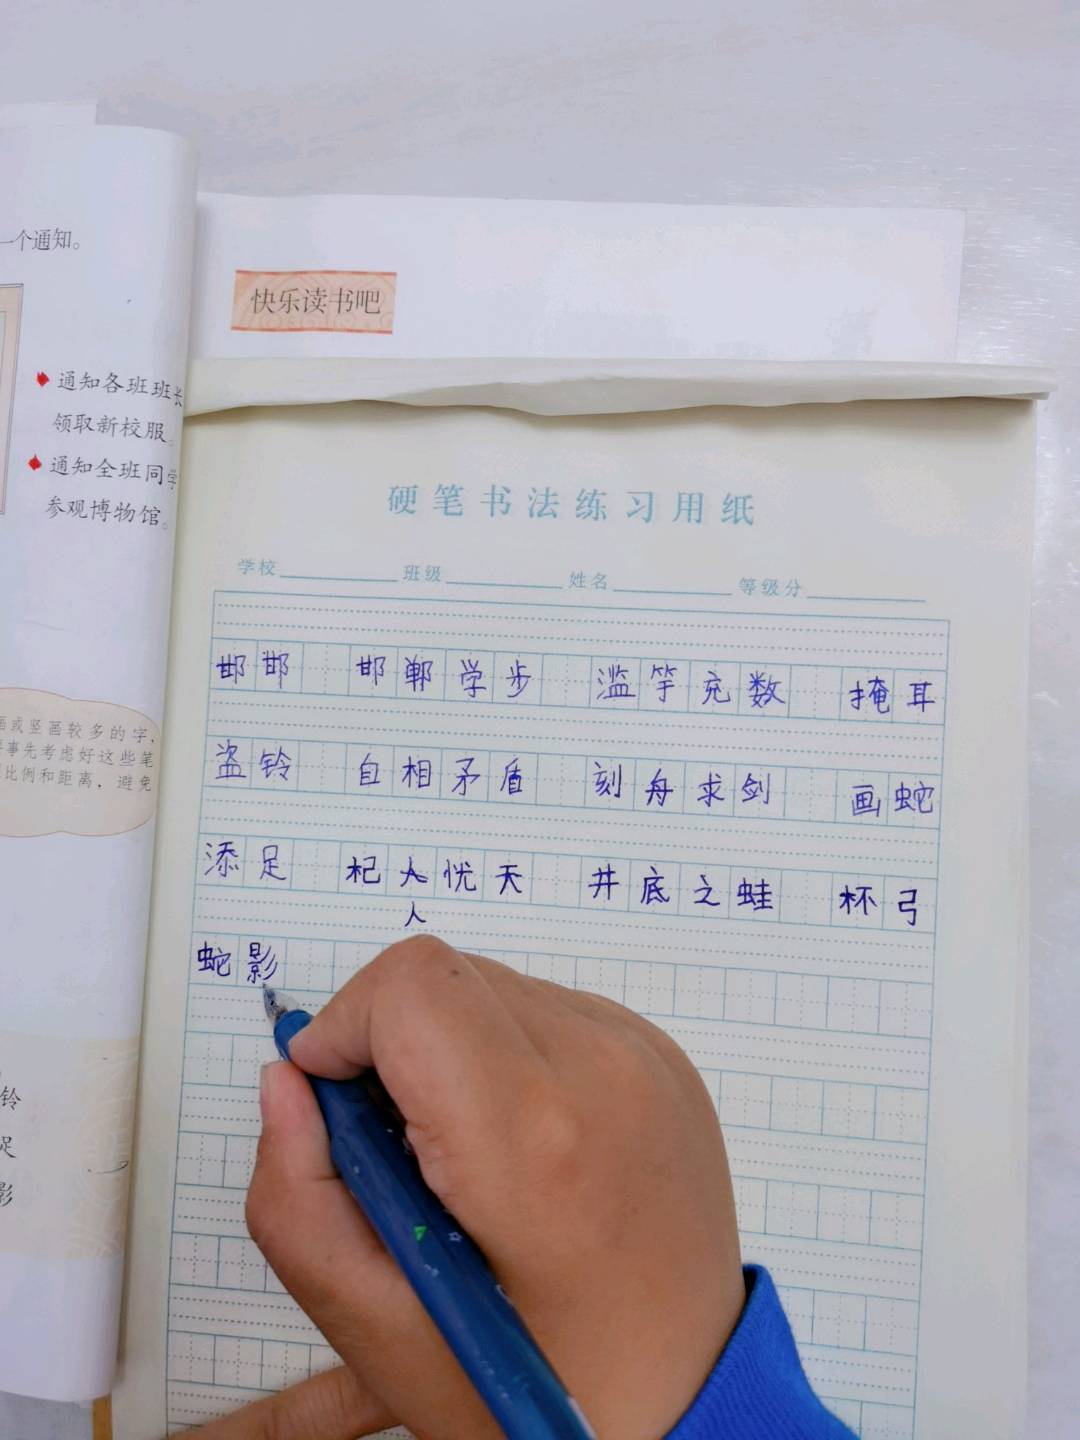 一个通知。
快乐读书吧
通知各班班长
领取新校服。
通知全班同学
参观博物馆。
画或竖画较多的字，
事先考虑好这些笔
比例和距离，避免
铃
足
影
硬笔书法练习用纸
学校 班级 姓名 等级分
邯邯 邯郸学步 滥竽充数 掩耳
盗铃 自相矛盾 刻舟求剑 画蛇
添足 杞人忧天 井底之蛙 杯弓
人
蛇影